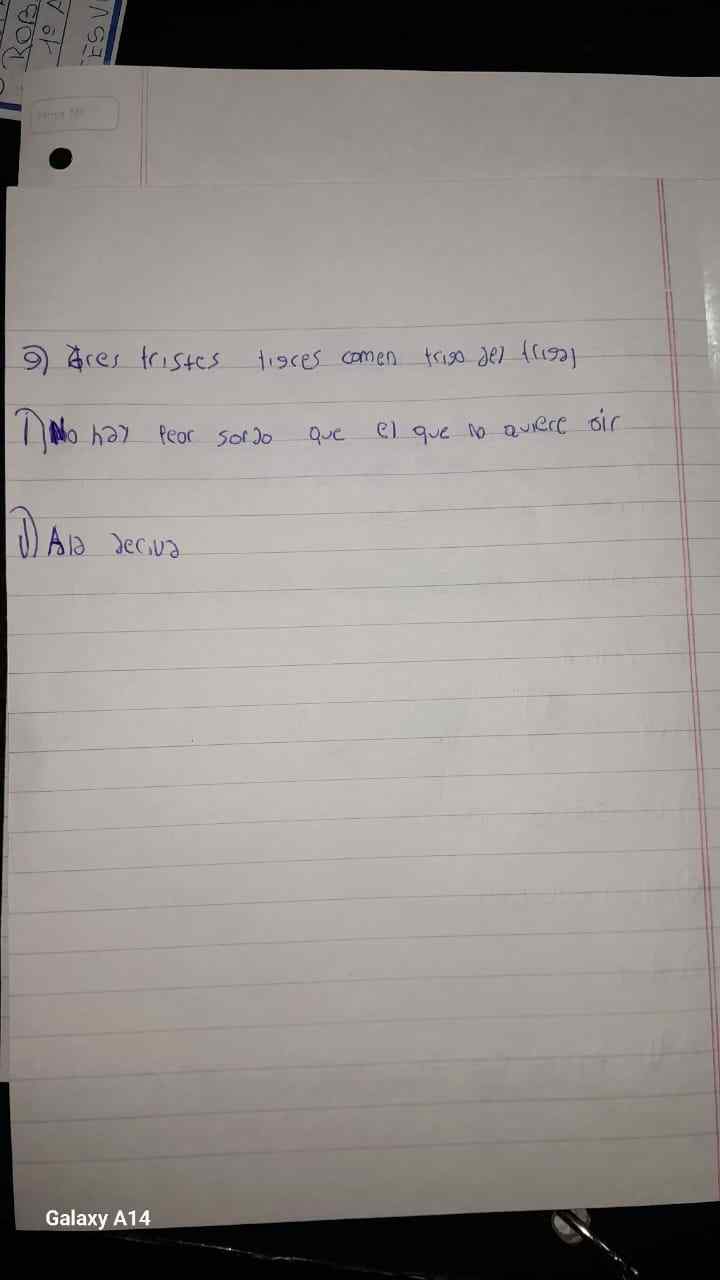 ROB
1º A
ES V
9) tres tristes tigres comen trigo del trigal
1) No hay peor sordo que el que no quiere oir
J) A la deriva
Galaxy A14